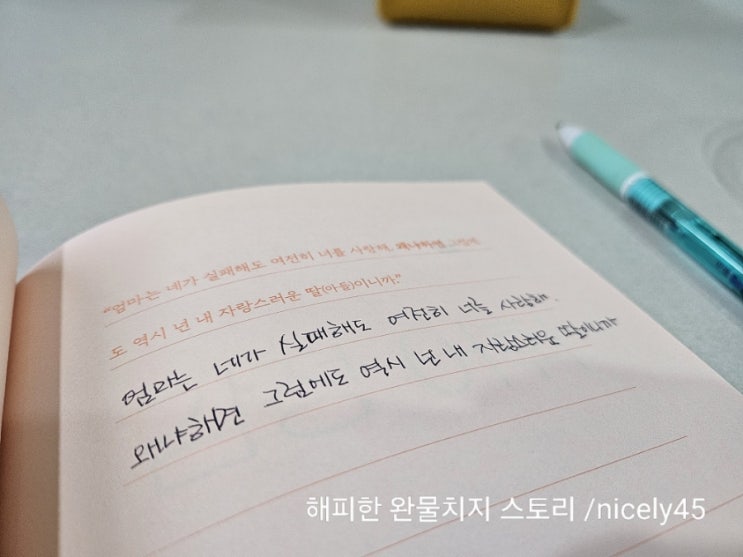 "엄마는 네가 실패해도 여전히 너를 사랑해. 왜냐하면 그럼에
도 역시 넌 내 자랑스러운 딸(아들)이니까."
엄마는 네가 실패해도 여전히 너를 사랑해.
왜냐하면 그럼에도 역시 넌 내 자랑스러운 딸이니까
해피한 완물치지 스토리 /nicely45